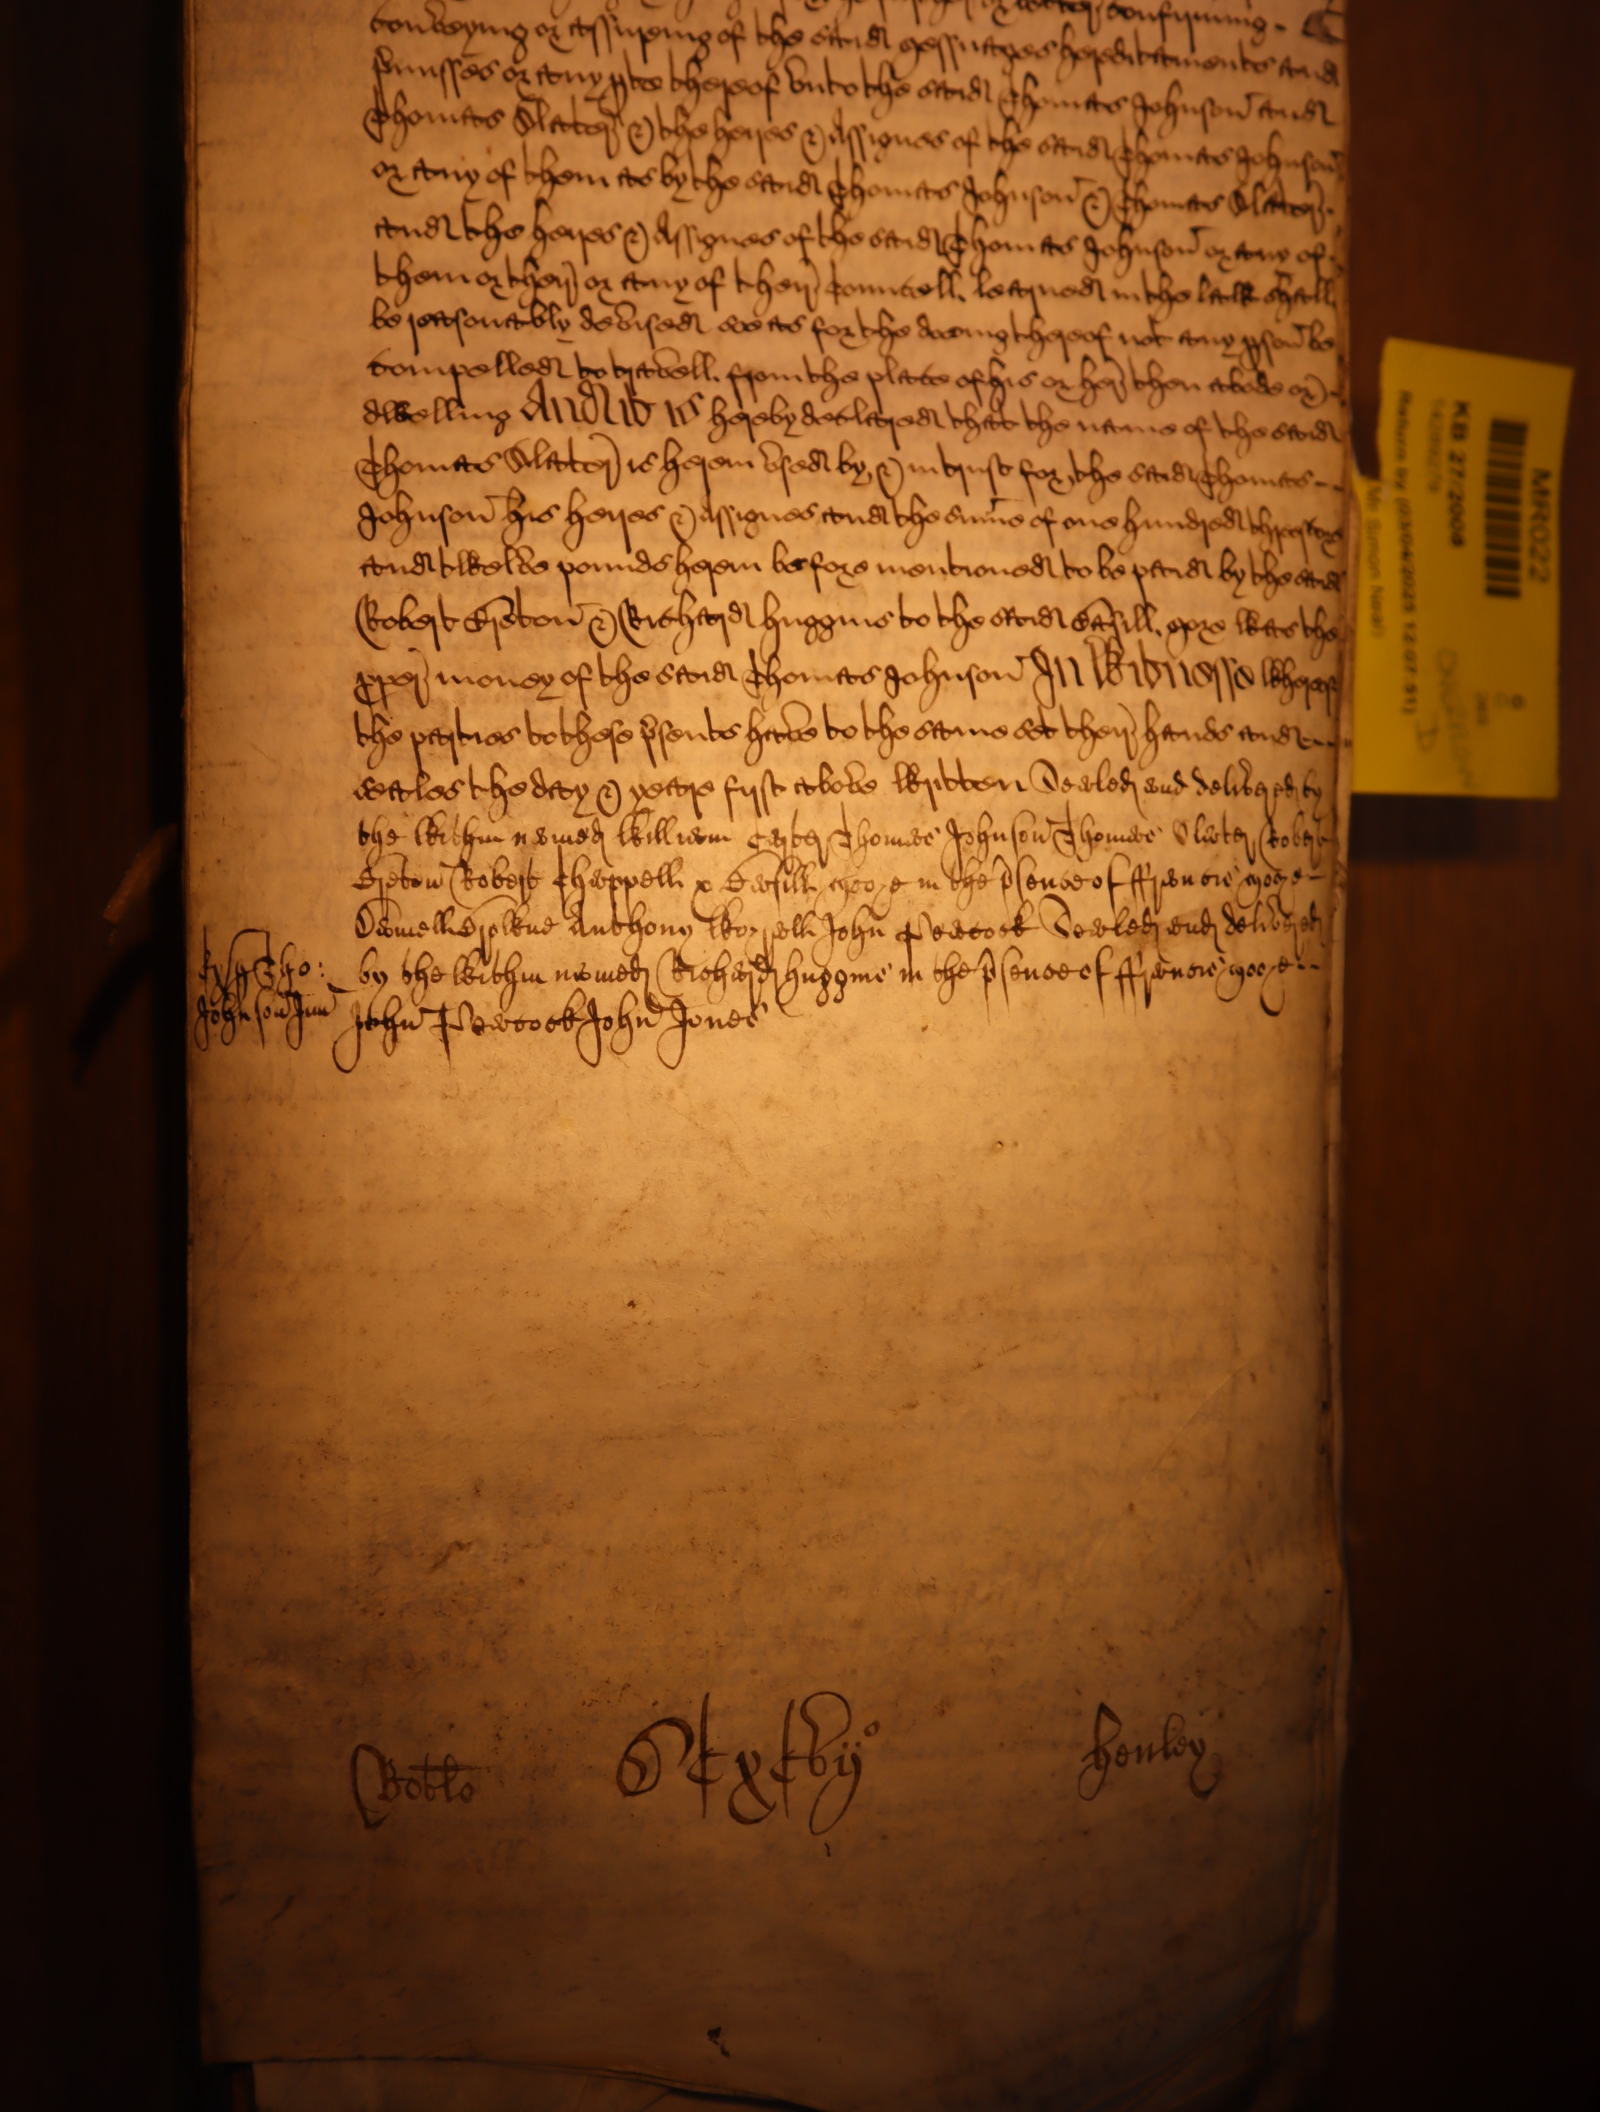 confirming
conveying or assureing of the said Messuages hereditaments and
p̃misses or any pte thereof unto the said Thomas Johnson and
Thomas Slater & the heires & Assignes of the said Thomas Johnson
or any of them as by the said Thomas Johnson & Thomas Slater
and the heires & Assignes of the said Thomas Johnson or any of
them or their or any of their Councell learned in the law shall
be reasonably devised soe as for the doeing thereof not any pson be
compelled to travell from the place of his or her then abode or
dwelling And it is hereby declared that the name of the said
Thomas Slater is herein used by & in trust for the said Thomas
Johnson his heires & Assignes and the sume of one hundred threescore
and twelve pounds herein before mentioned to be paid by the said
Robert Greton & Richard Huggins to the said Cassill More was the
pper money of the said Thomas Johnson In Witnesse whereof
the parties to these p̃sents have to the same set their hands and
seales the day & yeare first above written Sealed and delivered by
the within named William Carter Thomas Johnson Thomas Slater Robert
Greton Robert Chappell x Cassill Moore in the p̃sence of ffrancis Moore
Samuell Anthony Worrall John Peacock Sealed and delivered
by the within named Richard Huggins in the p̃sence of ffrancis Moore
John Peacock John Jones
Ex p Tho:
Johnson Jun
Rotlo Henley
MR022
KB 27/2009
Return by (03/04/2025 12:07:51)
Mr Simon Neal